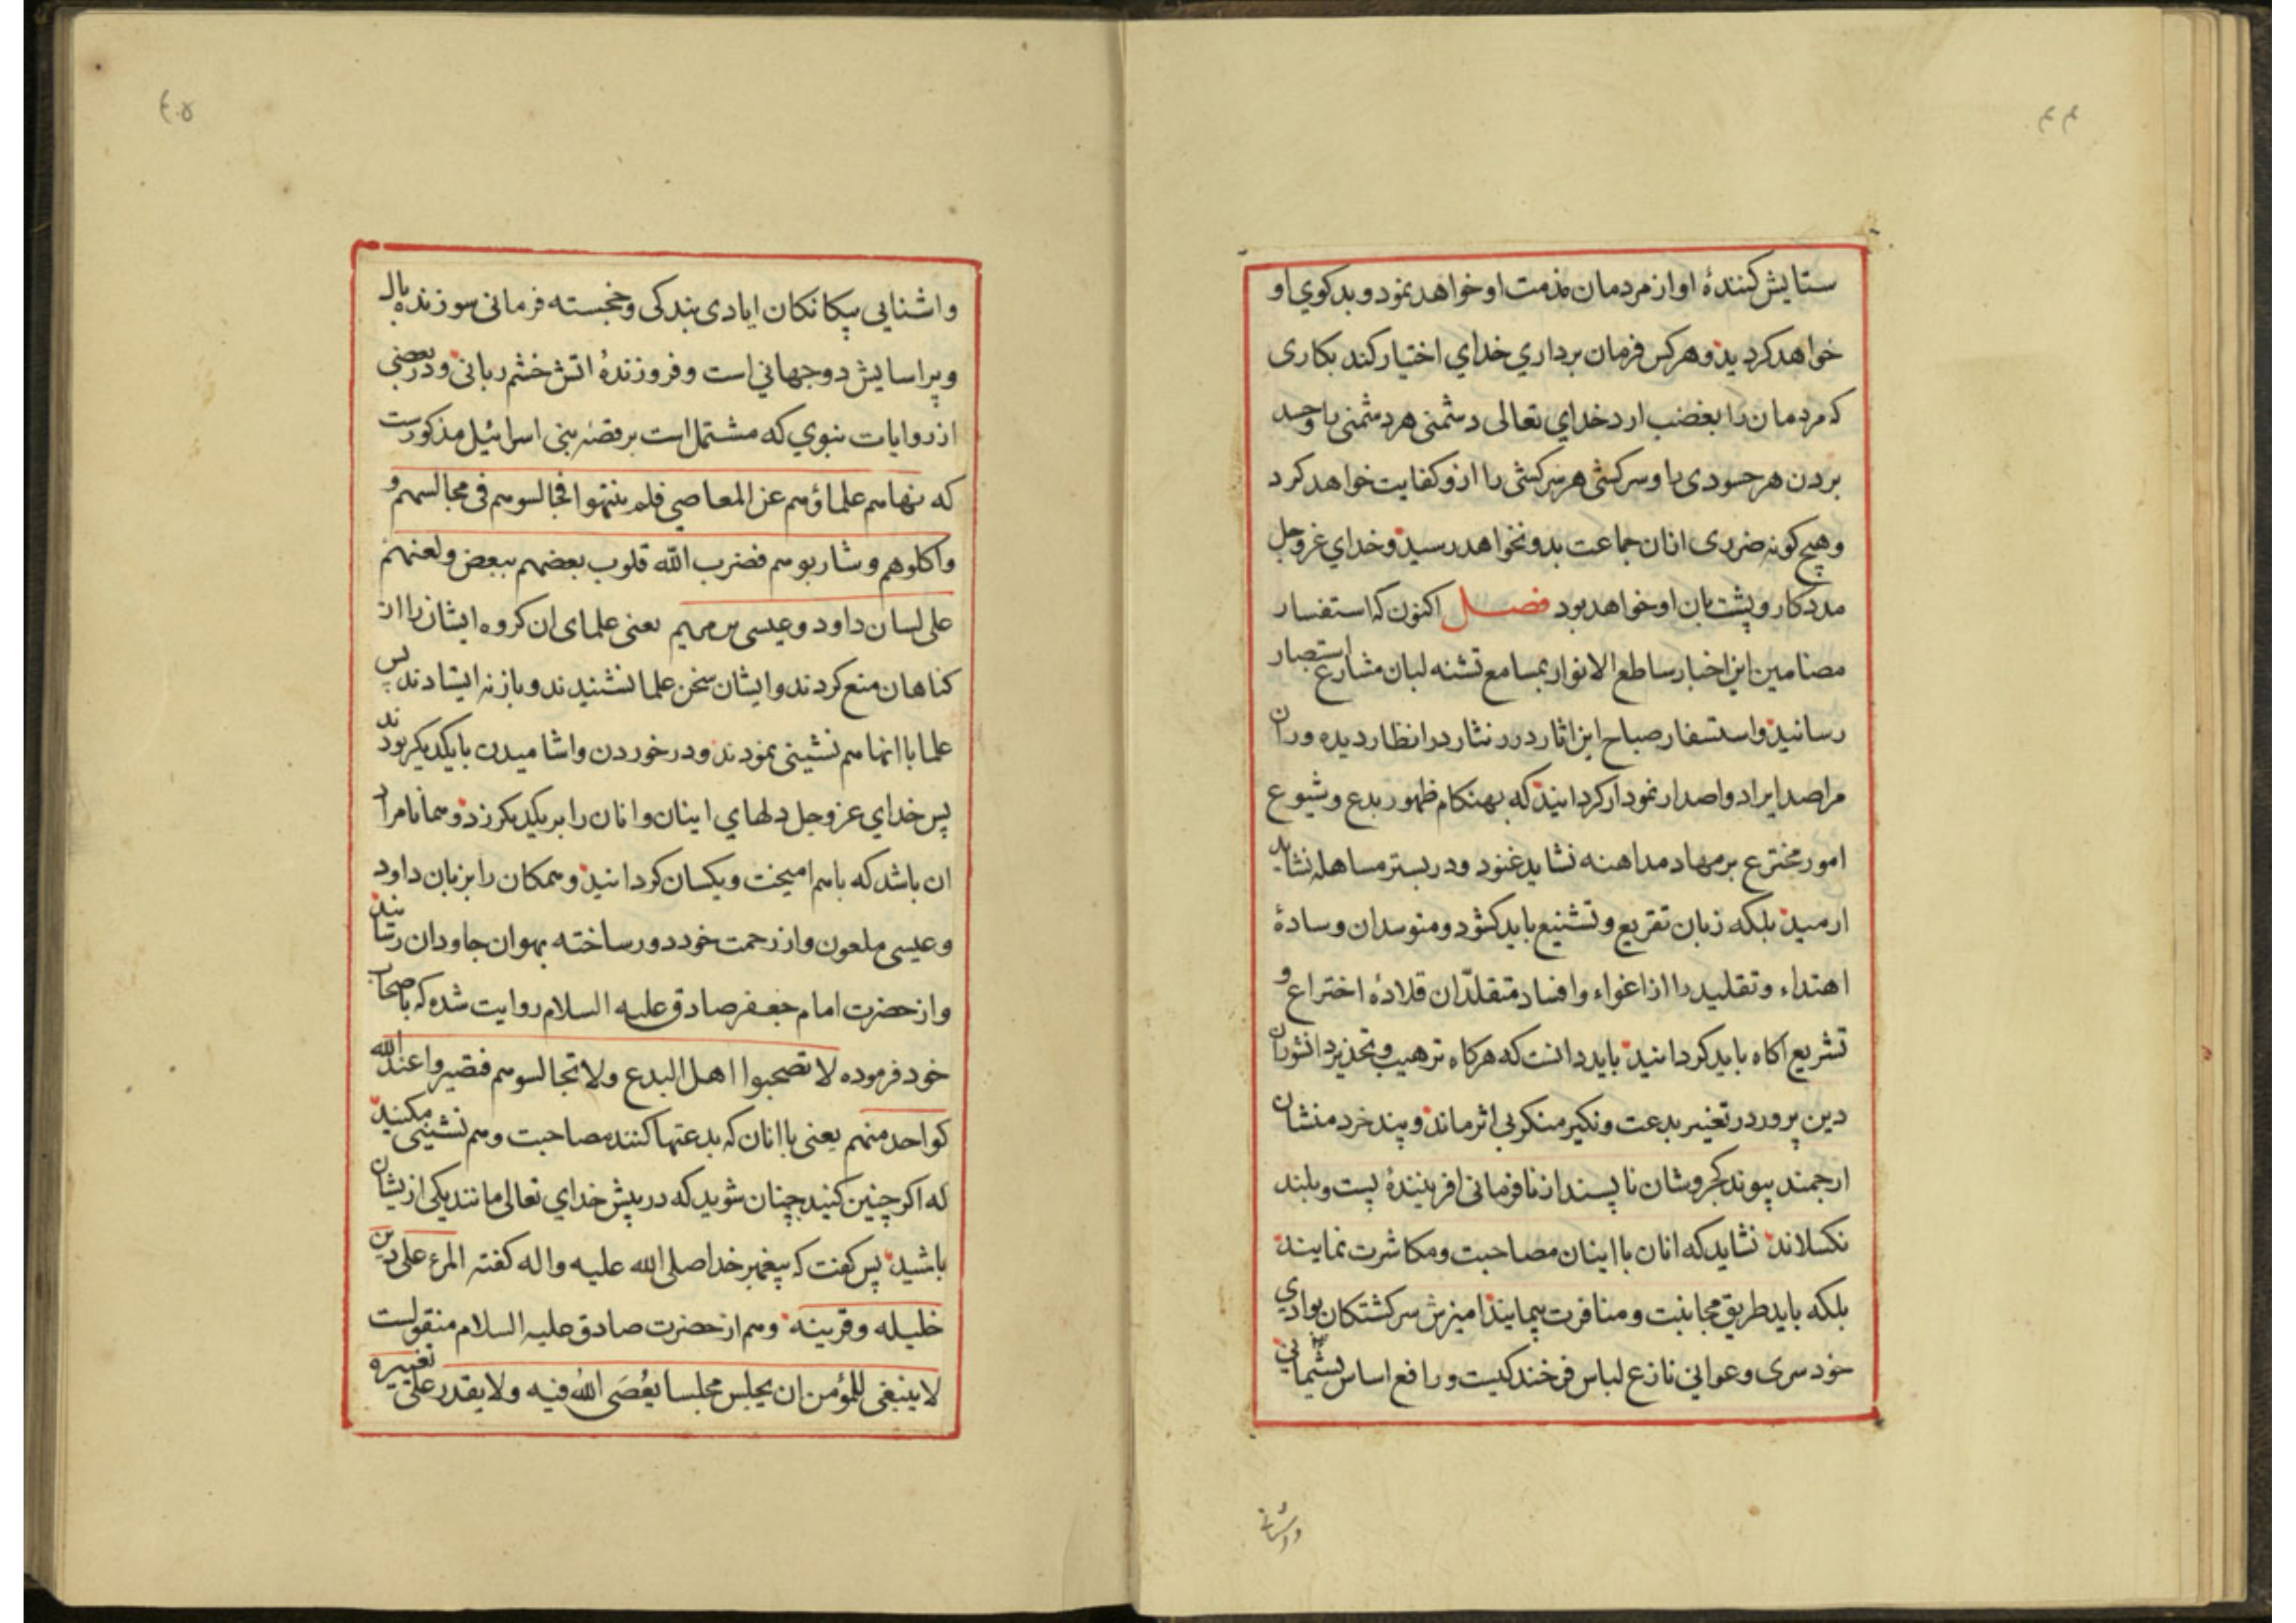 ۴۴
ستایش کنندهٔ او از مردمان مذمت او خواهد نمود و بد کوی او
خواهد کردید و هر کس فرمان برداري خداي اختیار کند بکاری
که مردمان را بغضب ارد خداي تعالی دشمنی هر دشمنی با و حسد
بردن هر حسودی با و سرکشی هر سرکشی را ازو کفایت خواهد کرد
و هیچ کونه ضرری از انان جماعت بدو نخواهد رسید و خداي عز و جل
مددکار و پشتبان او خواهد بود فصل اکنون که استفسار
مضامین این اخبار ساطع الانوار بمسامع تشنه لبان مشارع استبصار
رسانید و استسفار صباح این اثار درر نثار در انظار دیده وران
مراصد ایراد و اصدار نمودار کردانید که بهنکام ظهور بدع و شیوع
امور مخترع بر مهاد مداهنه نشاید غنود و در بستر مساهله نشاید
ارمید بلکه زبان تقریع و تشنیع باید کشود و متوسدان وسادهٔ
اهتداء و تقلید را از اغواء و افساد متقلّدان قلادهٔ اختراع و
تشریع اکاه باید کردانید باید دانست که هر کاه ترهیب و تحذیر دانشوران
دین پرور در تغییر بدعت و نکیر منکر بی اثر ماند و پند خرد منشان
ارجمند پیوند کجروشان ناپسند از نافرمانی افرینندهٔ پست و بلند
نکسلاند نشاید که انان با اینان مصاحبت و مکاشرت نمایند
بلکه باید طریق مجانبت و منافرت پیمایند امیزش سرکشتکان بوادي
خودسری و عوانی نازع لباس فرخند کیست و رافع اساس پشیمانی
واشنایی
۴۰۵
و اشنایی بیکانکان ایادی بندکی و خجسته فرمانی سوزندهٔ بال
و پر اسایش دو جهاني است و فروزندهٔ اتش خشم ربانی و در بعضی
از روایات نبوي که مشتمل است بر قصهٔ بنی اسرائیل مذکورست
که نهاهم علماؤهم عن المعاصي فلم ینتهوا فجالسوهم فی مجالسهم و
واکلوهم و شاربوهم فضرب الله قلوب بعضهم ببعض و لعنهم
علی لسان داود و عیسی بن مریم یعنی علمای ان کروه ایشان را از
کناهان منع کردند و ایشان سخن علما نشنیدند و باز نه ایستادند پس
علما با انها هم نشینی نمودند و در خوردن و اشامیدن با یکدیکر بودند
پس خداي عز و جل دلهاي اینان و انان را بر یکدیکر زد و همانا مراد
ان باشد که باهم امیخت و یکسان کردانید و همکان را بزبان داود
و عیسی ملعون و از رحمت خود دور ساخته بهوان جاودان رسانید
و از حضرت امام جعفر صادق علیه السلام روایت شده که باصحاب
خود فرموده لا تصحبوا اهل البدع ولا تجالسوهم فتصیروا عند الله
کواحد منهم یعنی با انان که بدعتها کنند مصاحبت و هم نشینی مکنید
که اکر چنین کنید چنان شوید که در پیش خداي تعالی مانند یکی از یشان
باشید پس کفت که پیغمبر خدا صلی الله علیه و اله کفته المرء علی دین
خلیله و قرینه و هم از حضرت صادق علیه السلام منقولست
لا ینبغی للمؤمن ان یجلس مجلسا یُعْصَی اللهُ فیه ولا یقدر علی تغییره